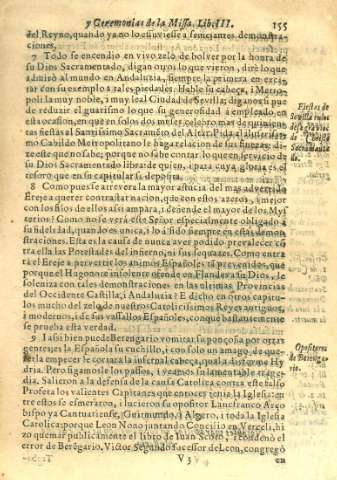 y Ceremonias de la Missa. Lib. III. 155
del Reyno, quando ya no lo estuviesse a semejantes demonstra-
ciones.
7 Todo se encendio en vivo zelo de bolver por la honra de
su Dios Sacramentado, digan otros lo que vieron, i dirè lo que
admirò al mundo en Andaluzia, siempre la primera en
tar con su exemplo a tales piedades. Hable su cabeça, i Metro-
poli la muy noble, i muy leal Ciudad de Sevilla; diganos si pue
de reduzir el guarismo lo que su generosidad à empleado en
esta ocasion, en que en solos dos meses celebrò mas de
tas fiestas al Santissimo Sacramẽto del Altar. Pida al
mo Cabildo Metropolitano se haga relacion de sus fuerzas,
este que no sabe; porque no sabe contar lo que en servicio de
su Dios Sacramentado
soro que en su capitular se deposita.
8 Como pues se atrevera la mayor astucia del mas advertido
Erege a querer contrastar nacion, que con estos azeros, i mejor
con los filos de ellos asi ampara, i defiende el mayor de los Mys
terios? Como no se verà este Señor especialmente obligado à
su fidelidad, quando es unica, i lo à sido siempre en estas demon
straciones. Esta es la causa de nunca aver podido prevalecer cõ
tra ella las Potestades del infierno, ni sus sequazes. Como entra
rà el Erege a pervertir los animos Españoles tã prevenidos, que
porque el Hugonote insolente ofende en Flandes à su Dios, se
soleniza con tales demonstraciones en las ultimas Provincias
del Occidente Castilla, i Andaluzia? E dicho en otros capitu-
los mucho del zelo de nuestros Catolicissimos Reyes antiguos,
i modernos, i de sus vassallos Españoles, conque bastantemente
se prueba esta verdad.
9 I assi bien puede Berengario vomitar su ponçoña por otras
gentes, i a la Española su cuchillo, i con solo un amago, de que-
rerla empecer le cortarà la infernal cabeça, qual a disforme Hy
dria. Pero sigamosle los passos, i veamos su lamentable trage-
dia. Salieron a la defensa de la causa Catolica contra este falso
Profeta los valientes Capitanes que entonces tenia la Iglesia: en
tre ellos se esmeraron, i lucieron sa opositor Lancfranco Arço
bispo ya Cantuariense, Guitmundo, i Algero, i toda la Iglesia
Catolica: porque Leon Nono juntando Concilio en Verceli, hi
zo quemar publicamente el libro de Iuan Scoto, i condenò el
error de Berẽgario, Victor Segundo sucessor de Leon, congregò
V 3 en
Fiestas de
Sevilla
Sacramen
Opositores
de Berenga-
rio.